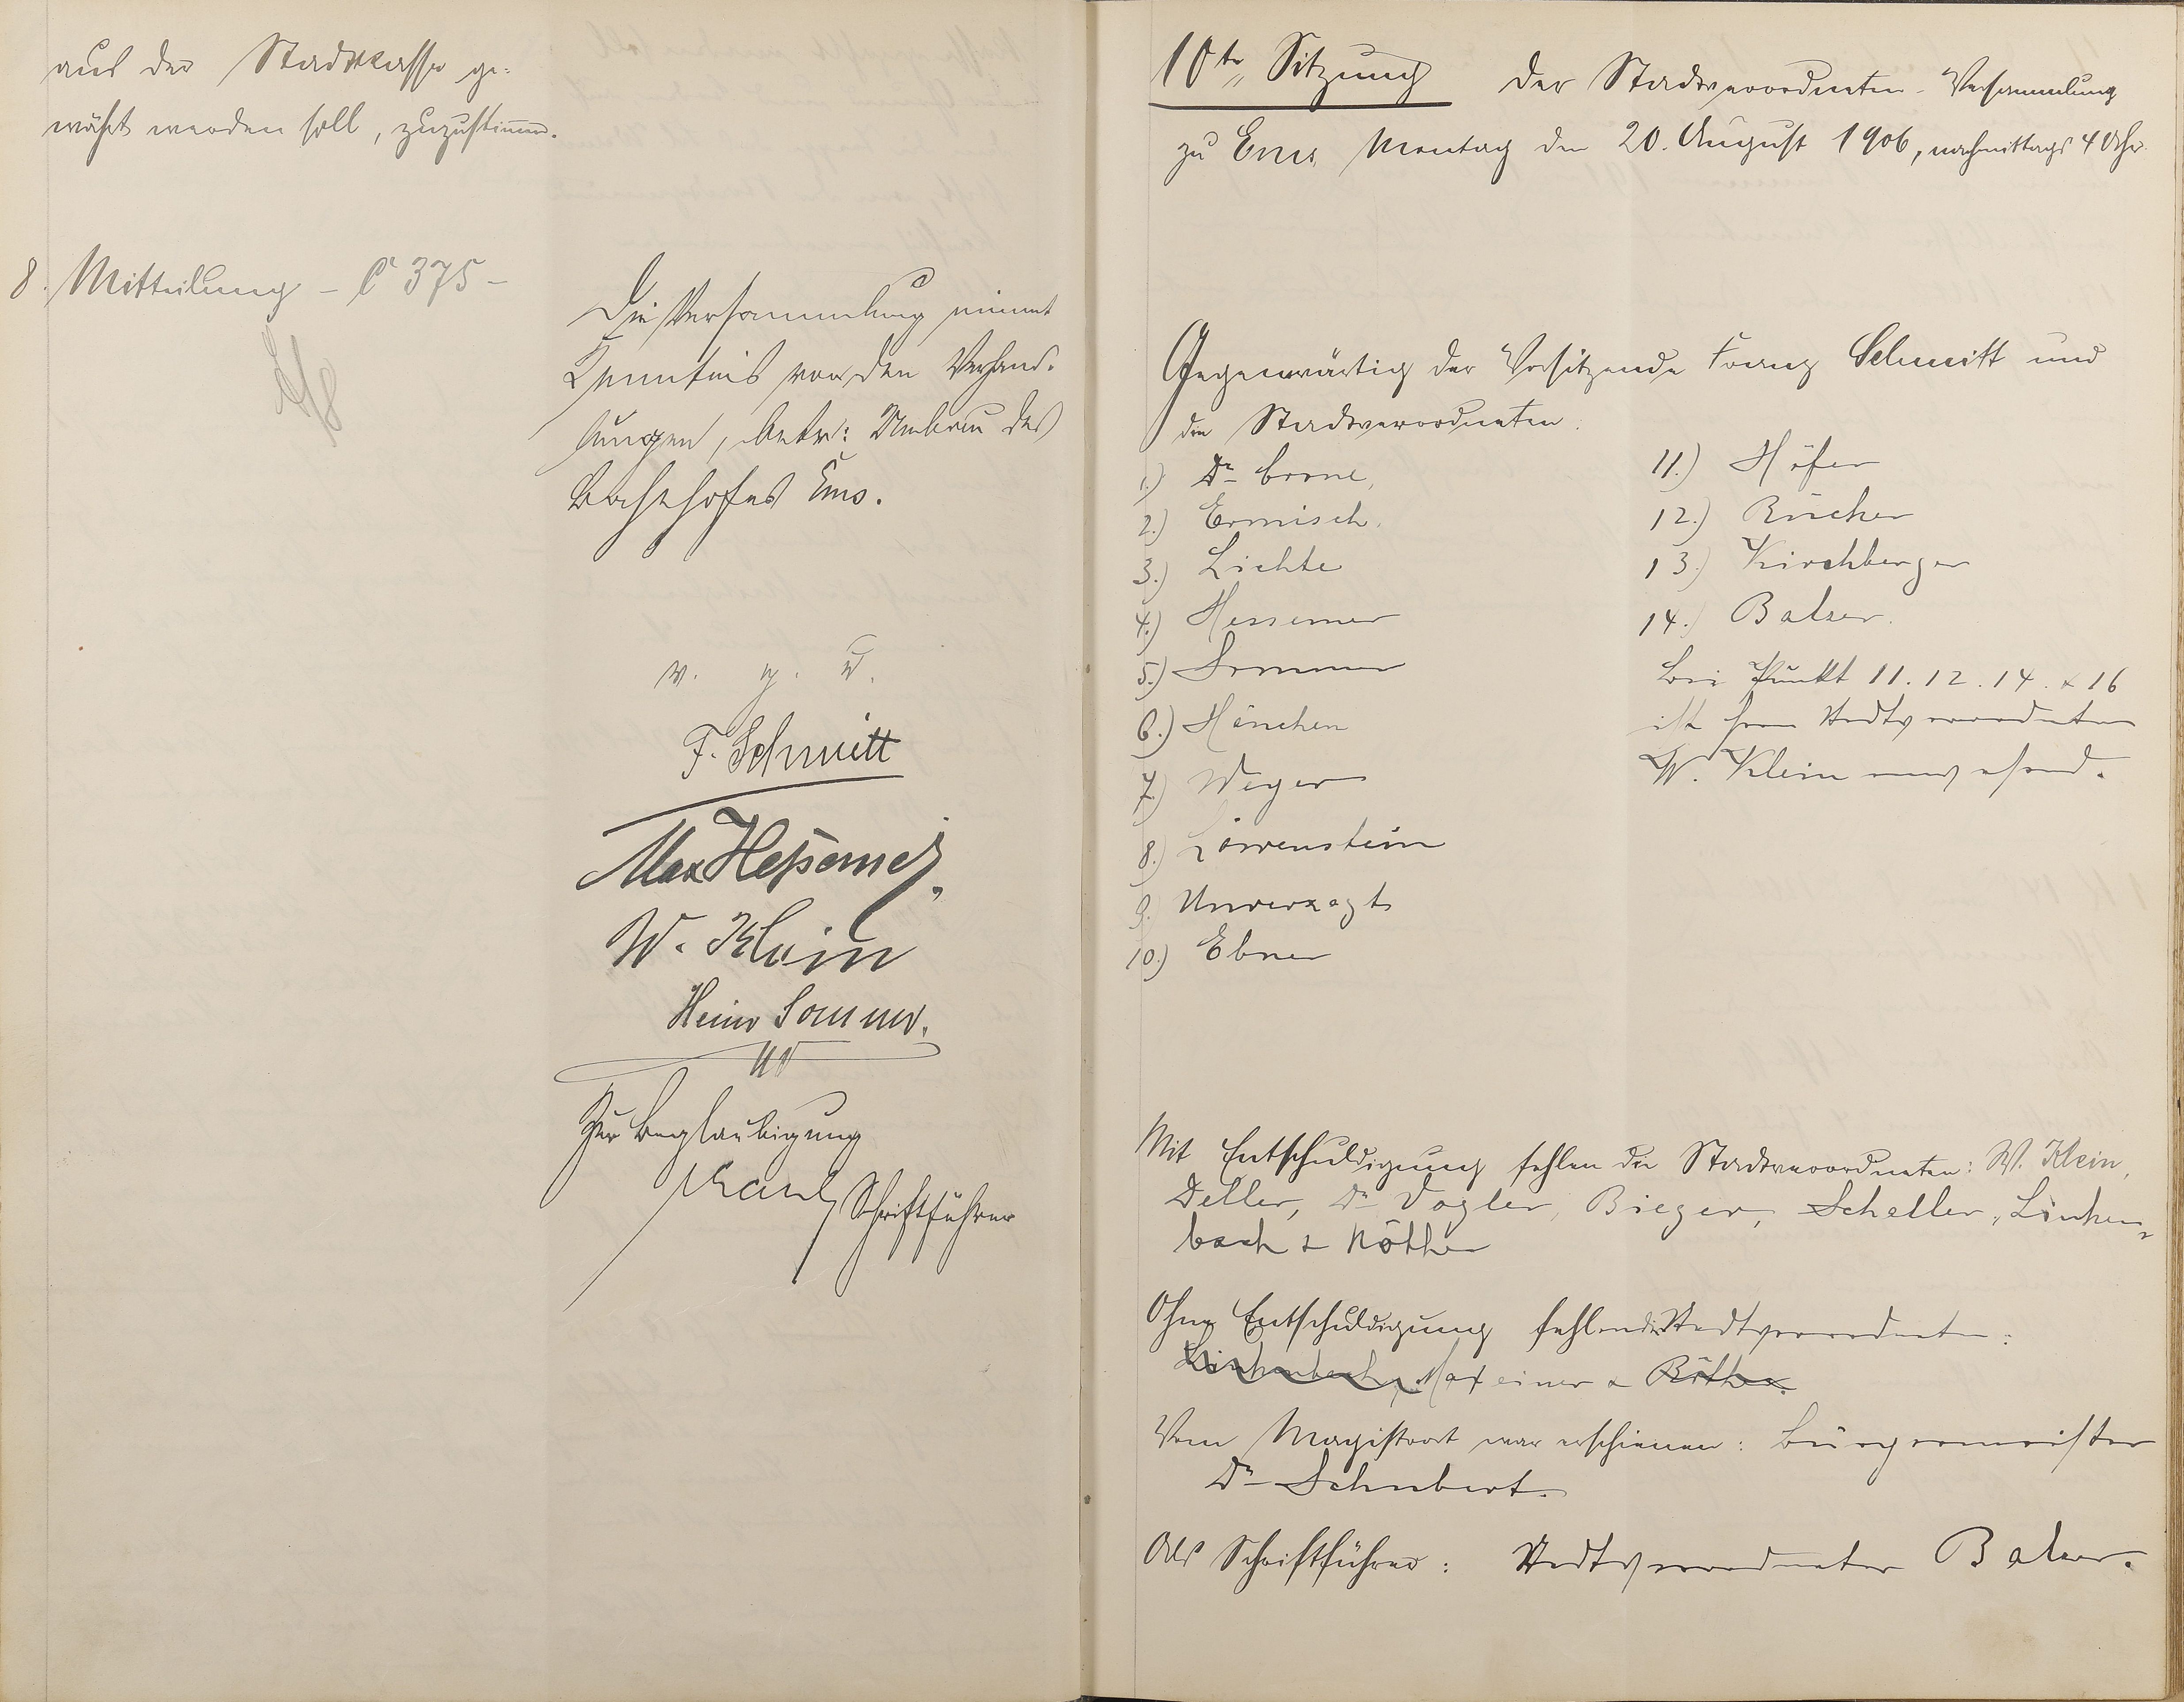 aus der Stadtkasse ge-
währt werden soll, zuzustimmen.
8. Mitteilung - C 375 -
Die Versammlung nimmt
Kenntnis von den Verhand-
lungen, betr: Umbau des
Bahnhofes Ems.
v. g. u.
F. Schmitt
Max Hessemer
W. Klein
Heinr Sommer.
Zur Beglaubigung
Schriftführer
10te Sitzung der Stadtverordneten-Versammlung
zu Ems, Montag den 20. August 1906, nachmittags 4 Uhr.
Gegenwärtig der Vorsitzende Franz Schmitt und
die Stadtverordneten:
1.) Dr. Corne,
2.) Ermisch,
3.) Lichte
4.) Hessemer
5.) Sommer
6.) Hänchen
7.) Weger
8.) Löwenstein
9. Unverzagt
10.) Ebner
11.) Höfer
12.) Rücker
13.) Kirchberger
14.) Balzer.
Bei Punkt 11. 12. 14. & 16
ist Herr Stadtverordneten
W. Klein anwesend.
Mit Entschuldigung fehlen die Stadtverordneten: W. Klein,
Deller, Dr. Vogler, Bieger, Scheller, Linken-
bach & Röther
Ohne Entschuldigung fehlen die Stadtverordneten:
Linkenbach, Maxeiner & Röther.
Vom Magistrat war erschienen: Bürgermeister
Dr. Schubert.
Als Schriftführer: Stadtverordneter Balzer.